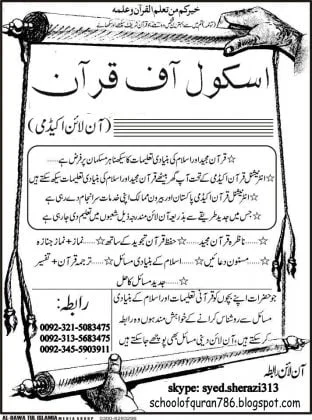 خیرکم من تعلم القرآن وعلمه
اسکول آف قرآن
(آن لائن اکیڈمی)
☆قرآن مجید اور اسلام کی بنیادی تعلیمات کا سیکھنا ہر مسلمان پر فرض ہے
☆انٹرنیشنل قرآن اکیڈمی کے تحت آپ گھر بیٹھے قرآن مجید اور اسلام کی بنیادی تعلیمات سیکھ سکتے ہیں
☆انٹرنیشنل قرآن اکیڈمی پاکستان اور بیرون ممالک اپنی خدمات سرانجام دے رہی ہے
☆جس میں جدید طریقے سے بذریعہ آن لائن مندرجہ ذیل شعبوں میں تعلیم دی جا رہی ہے
☆ناظرہ قرآن مجید......☆حفظ قرآن تجوید کے ساتھ......☆نماز+نماز جنازہ
☆مسنون دعائیں......☆اسلام کے بنیادی مسائل......☆ترجمہ قرآن+تفسیر
☆جدید مسائل کا حل
جو حضرات اپنے بچوں کو قرآنی تعلیمات اور اسلام کے بنیادی
مسائل سے روشناس کرانے کے خواہش مند ہوں وہ رابطہ
کریں۔ آن لائن دینی مسائل بھی پوچھے جا سکتے ہیں
رابطہ:
0092-321-5083475
0092-313-5683475
0092-345-5903911
آن لائن رابطہ
skype: syed.sherazi313
schoolofquran786.blogspot.com
AL-HAWA TUL ISLAMIA MEDIA GROUP